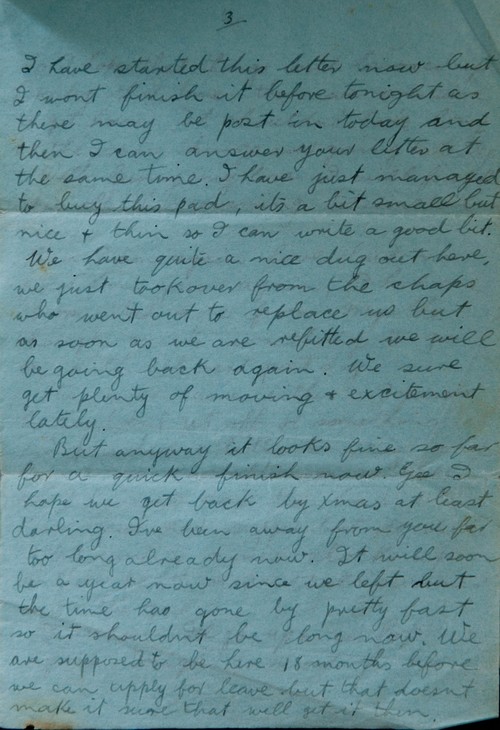 3
I have started this letter now but
I wont finish it before tonight as
there may be post in today and
then I can answer your letter at
the same time. I have just managed
to buy this pad, its a bit small but
nice + thin so I can write a good bit.
We have quite a nice dug out here,
we just took over from the chaps
who went out to replace us but
as soon as we are refitted we will
be going back again. We sure
get plenty of moving + excitement
lately.
But anyway it looks fine so far
for a quick finish now. Gee I
hope we get back by xmas at least
darling. I've been away from you far
too long already now. It will soon
be a year now since we left but
the time has gone by pretty fast
so it shouldn't be long now. We
are supposed to be here 18 months before
we can apply for leave but that doesn't
make it sure that we'll get it then.